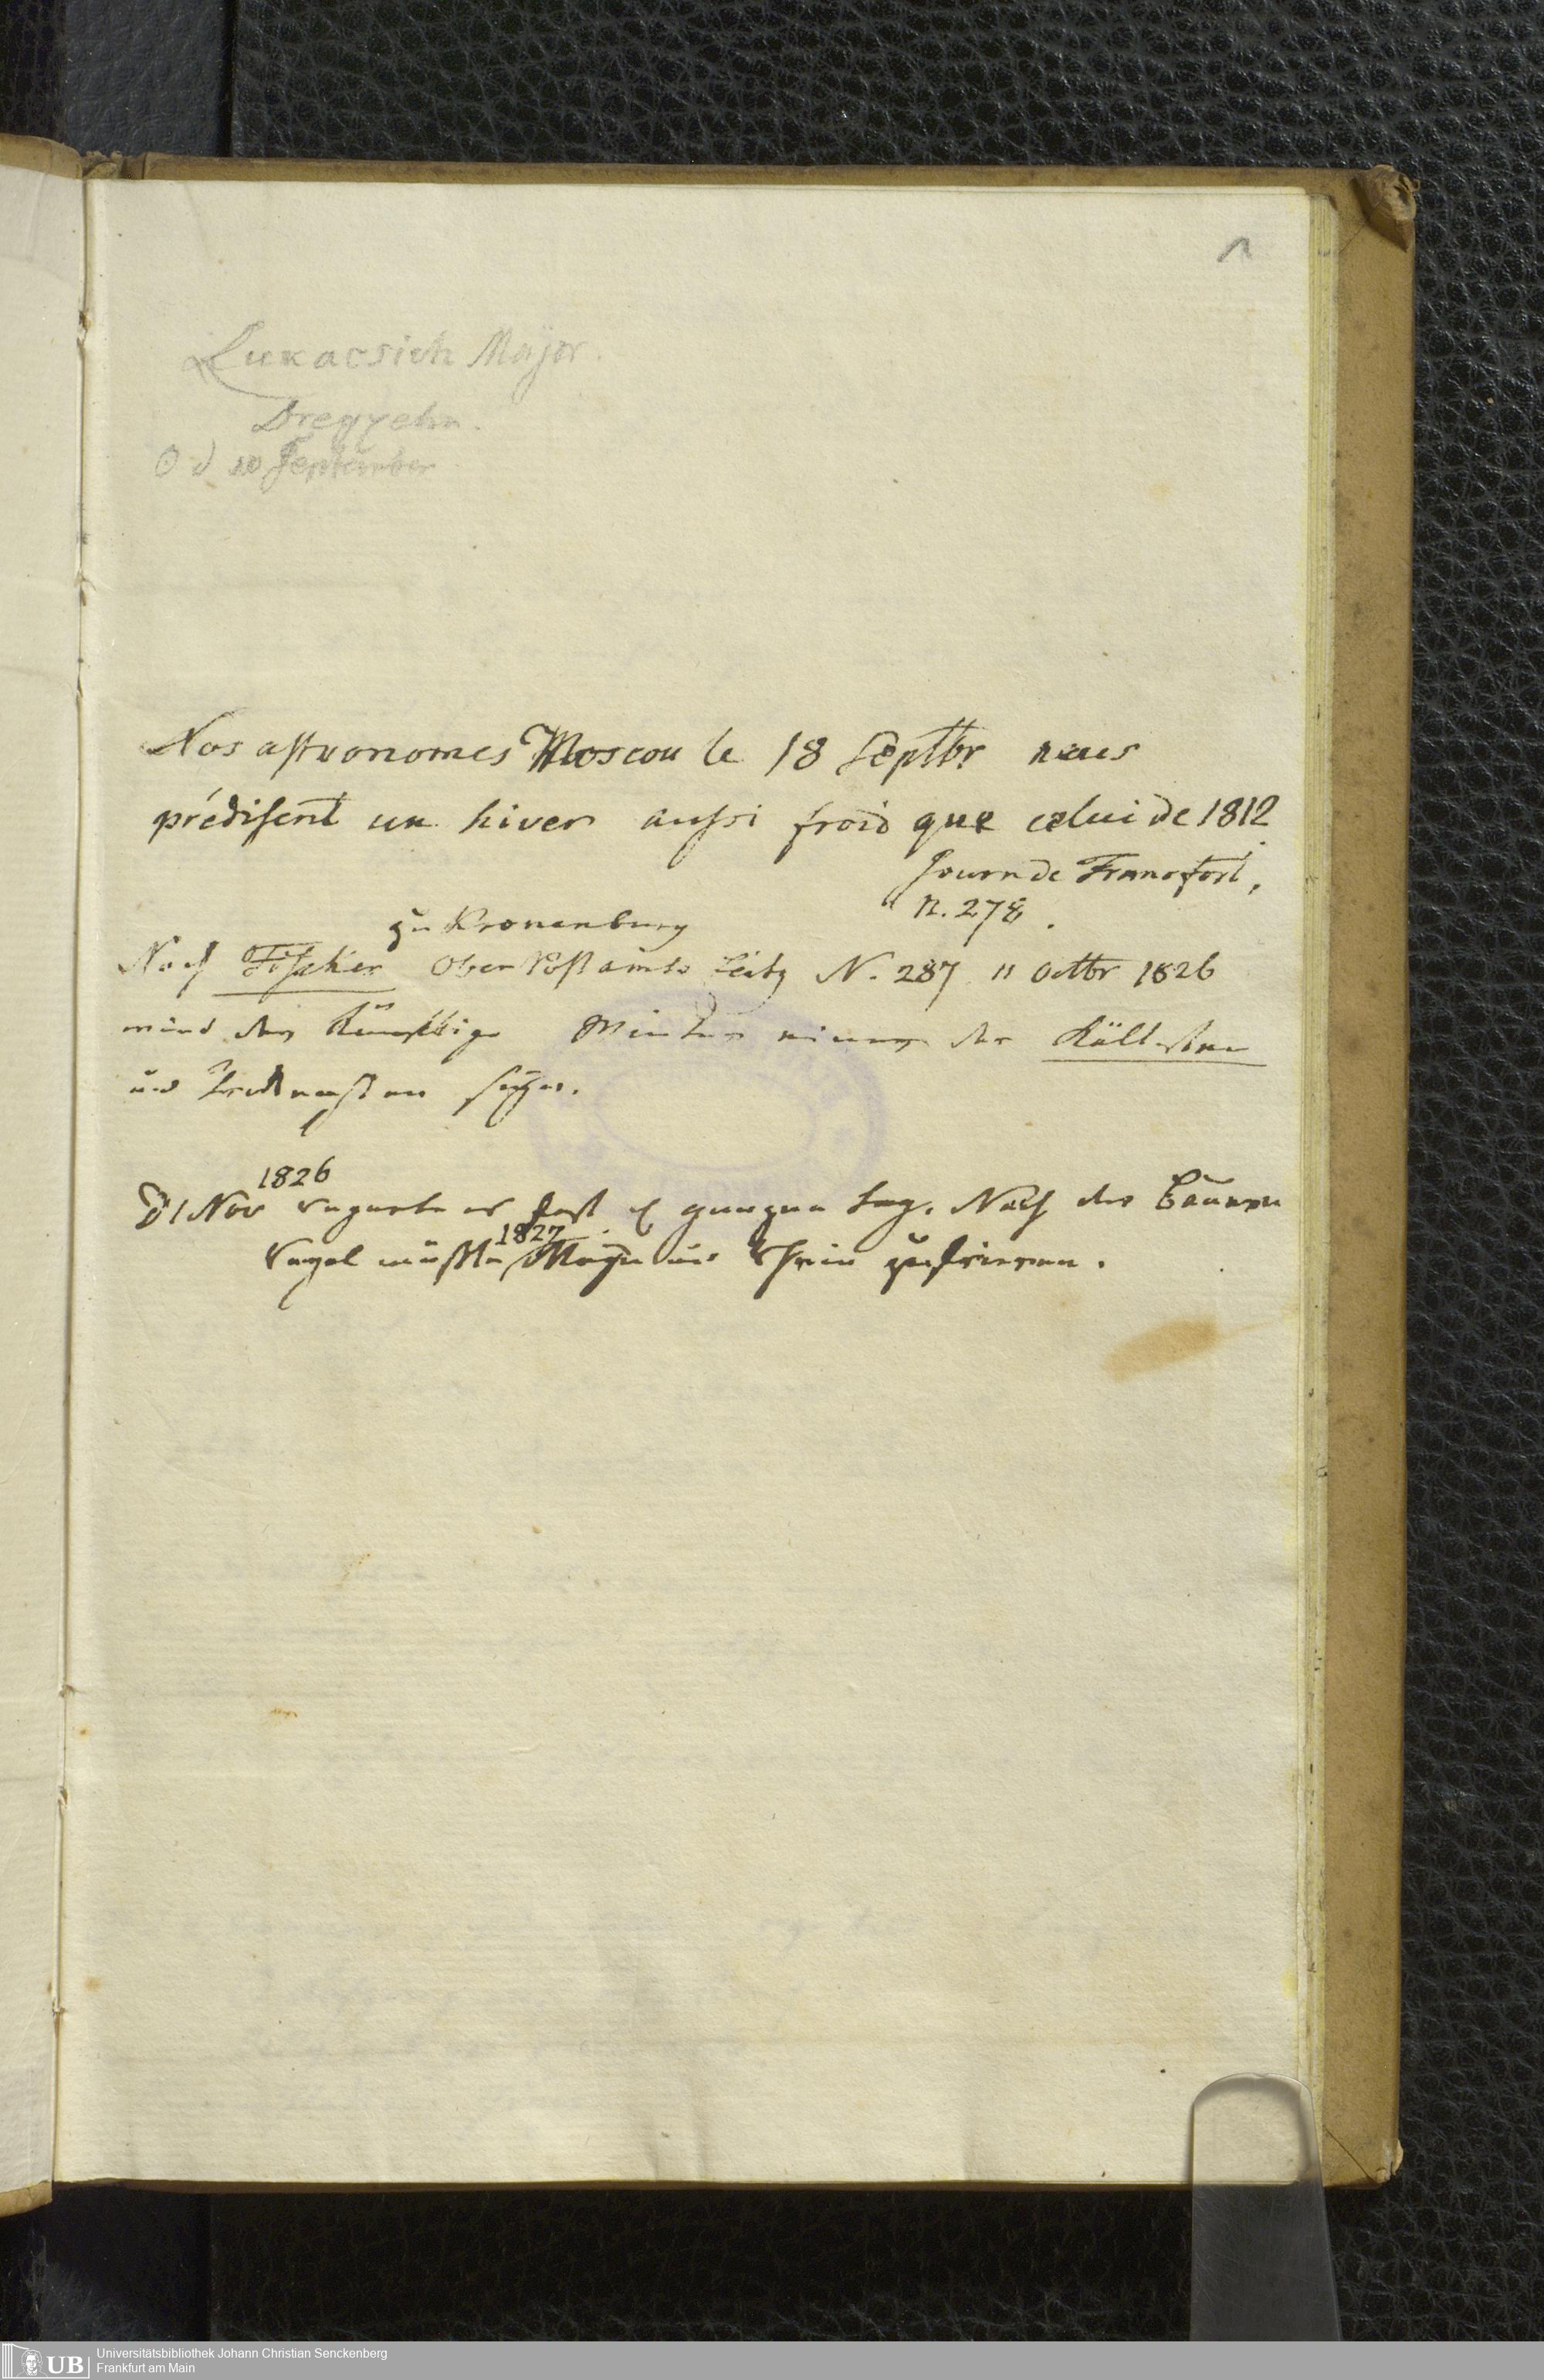 1
Lukacsich Major.
Dreyzehn.
O d 10 September
Nos astronomes Moscou le 18 Septbr nous
prédisent un hiver aussi froid que celui de 1812.
Journ de Francfort,
n. 278.
zu Kronenburg
Nach Fischer Ober Postamts Zeitg N. 287 11 Octbr 1826
wird der künftige Winter einer der Kältesten
und Trockensten seyn.
1826
D 1 Nov regnete es fast den ganzen Tag. Nach der Bauern
1827
Regel müsste Mayn und Rhein zufrieren.
UB Universitätsbibliothek Johann Christian Senckenberg
Frankfurt am Main